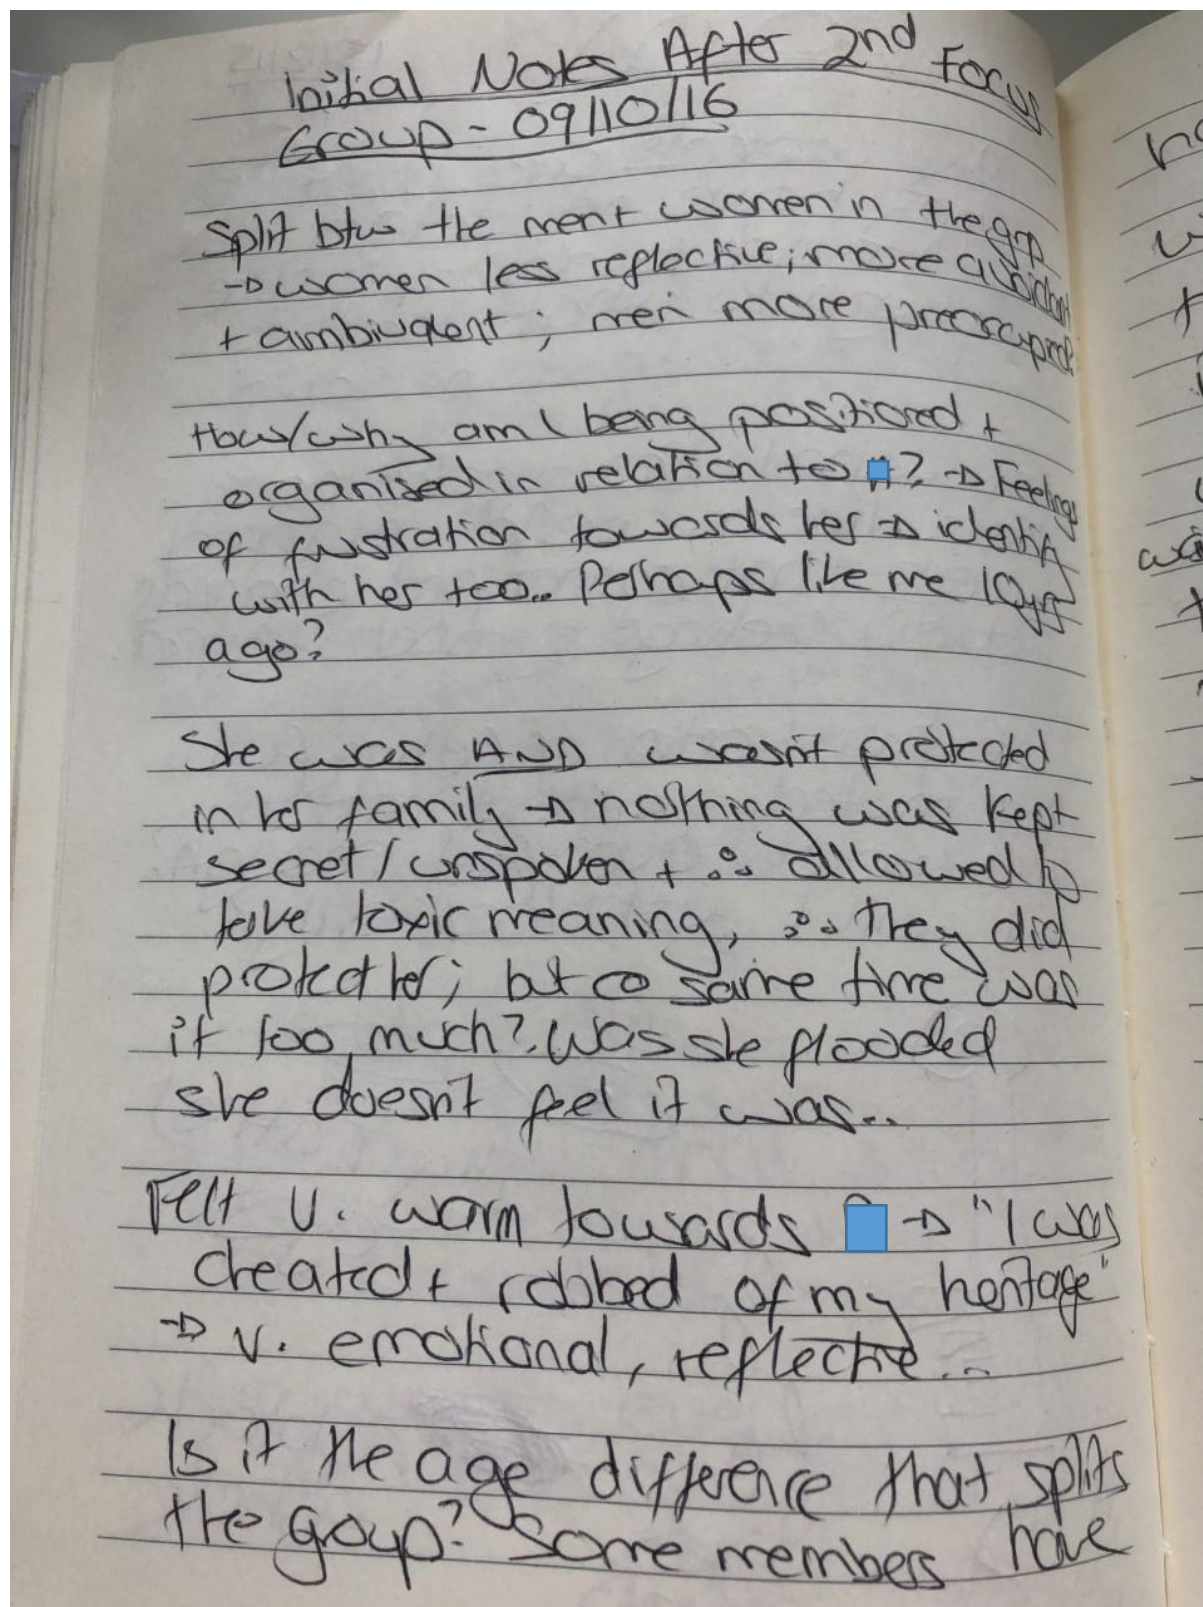 Initial Notes After 2nd Focus
Group - 09/10/16
Split btw the men + women in the grp
→ women less reflective; more avoidant
+ ambivalent; men more preoccupied.
How/why am I being positioned +
organised in relation to ? → Feelings
of frustration towards her → identify
with her too.. Perhaps like me 10yrs
ago?
She was AND wasn't protected
in her family → nothing was kept
secret/unspoken + ∴ allowed to
have toxic meaning, ∴ they did
protect her; but @ same time was
it too much? Was she flooded
she doesn't feel it was..
Felt v. warm towards → "I was
cheated + robbed of my heritage"
→ v. emotional, reflective...
Is it the age difference that splits
the goup? Some members have